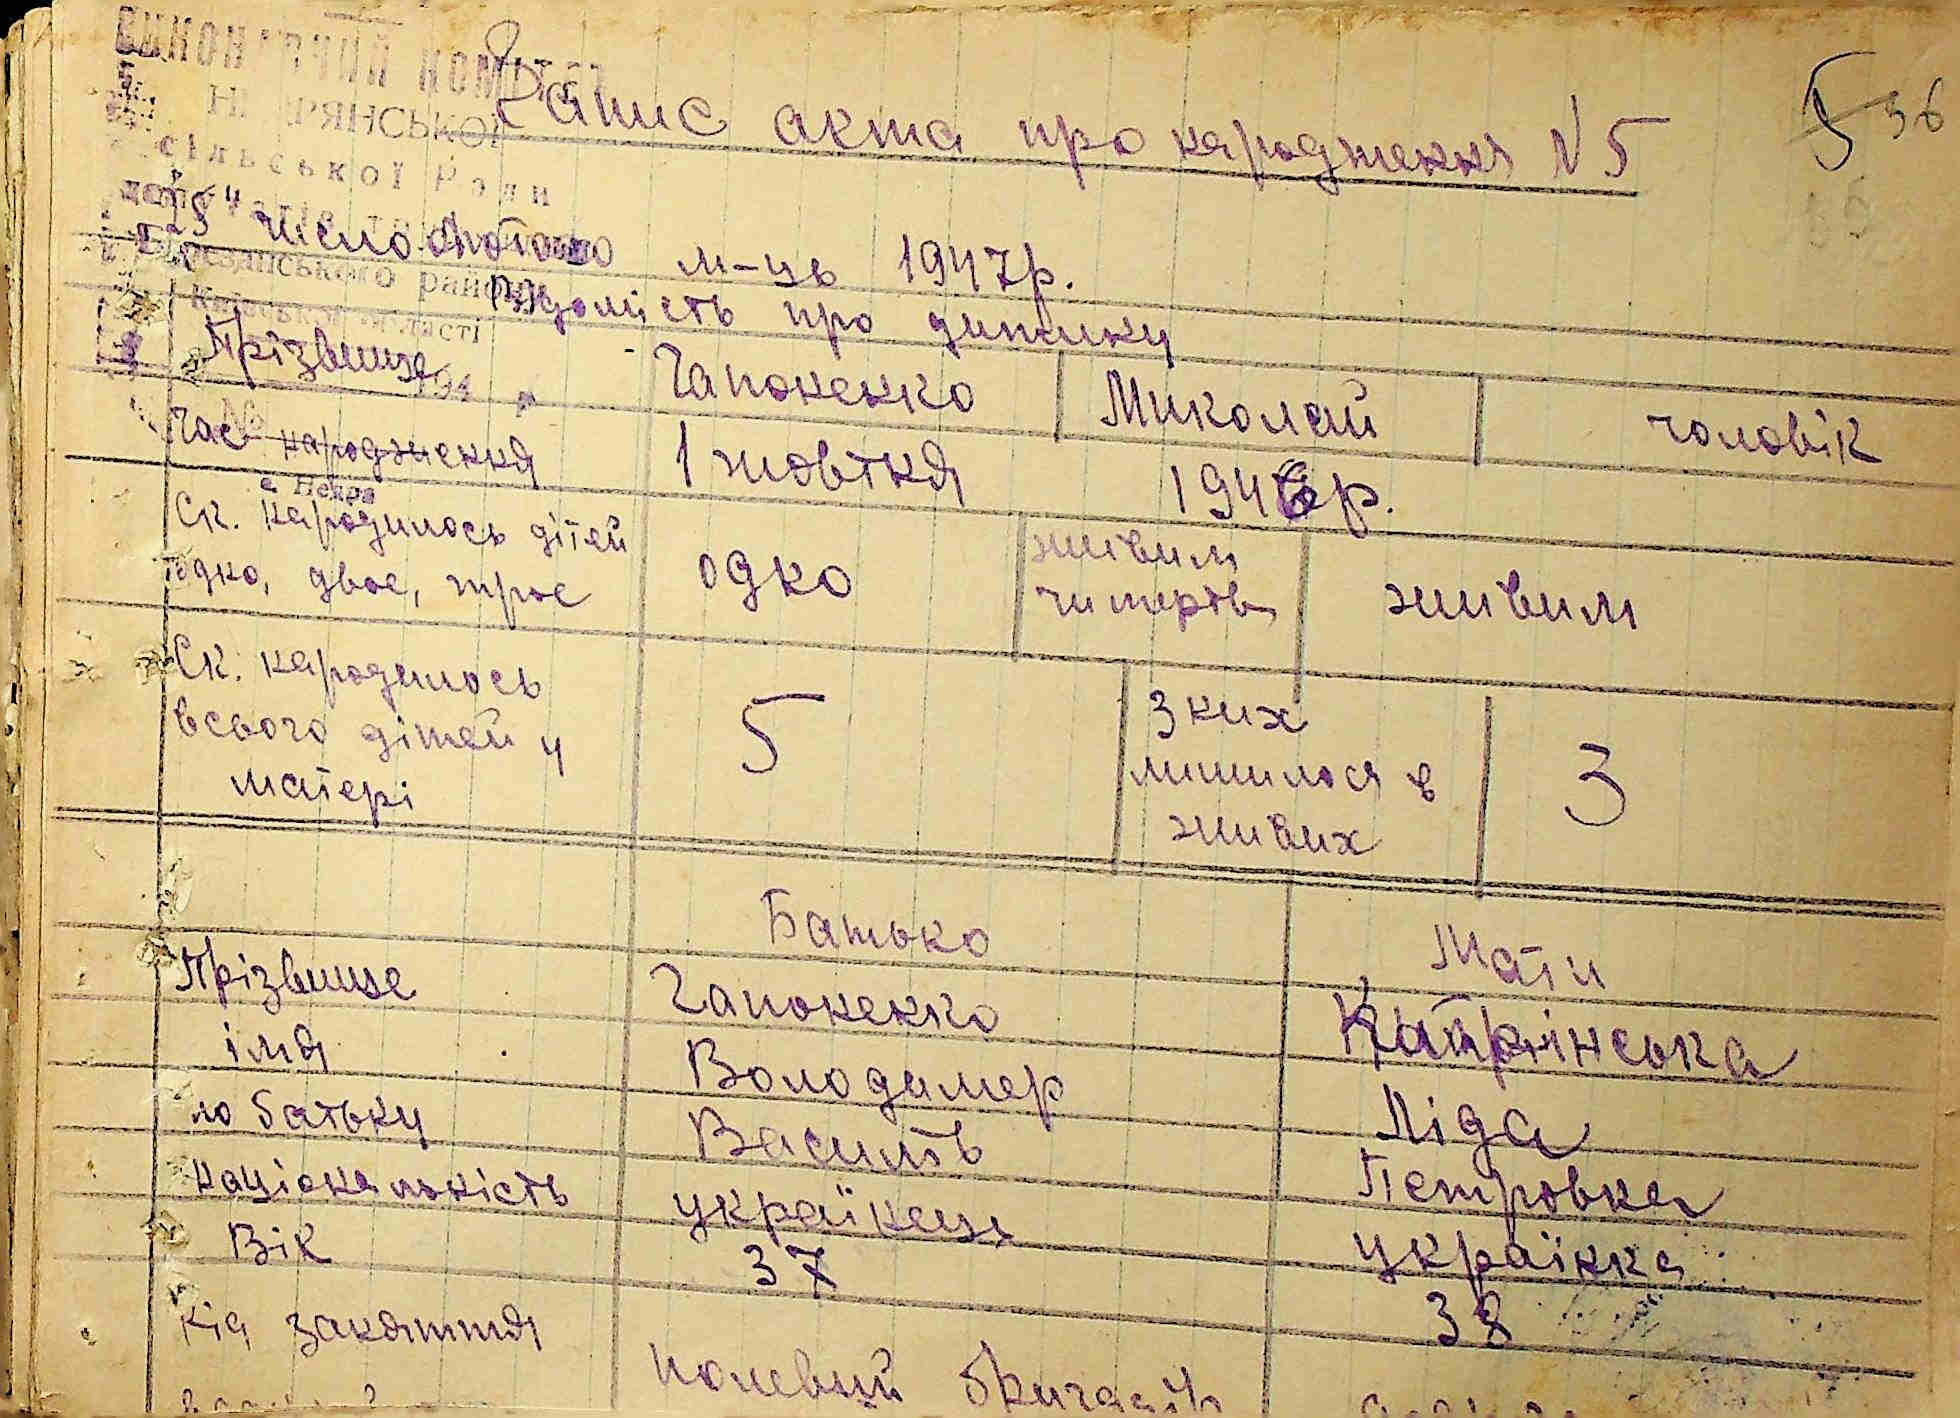 Запис акта про народження N 5
5 36
ВИКОНАВЧИЙ КОМІТЕТ
сільської Ради
25 число лютого м-ць 1947р.
району
Київської області
Відомість про дитину
Прізвище Гапоненко Миколай чоловік
194
Час народження 1 жовтня 1946р.
Ск. народилось дітей
одно, двое, трое
одно
живим
чи мертв
живим
Ск. народилось
всього дітей у
матері
5
З них
лишилося в
живих
3
Батько Мати
Прізвище Гапоненко Катрінська
імя Володимер Ліда
по батьку Василів Петровна
національність українець українка
Вік 37 38
Рід заняття полевий